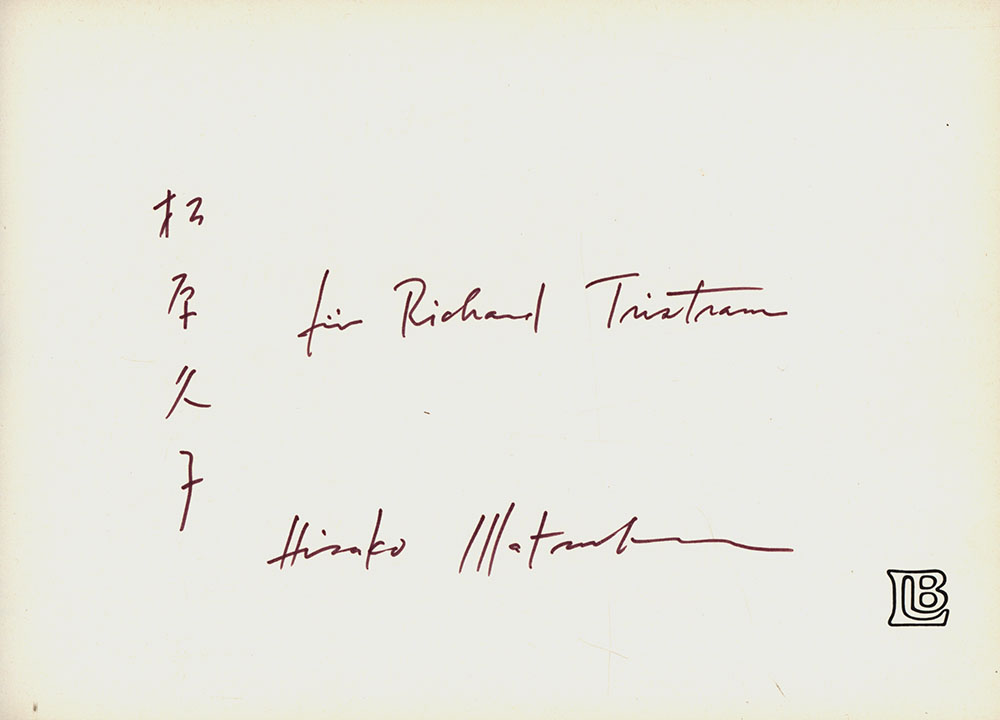 松原久子
für Richard Tristram
Hisako Matsubara
LB